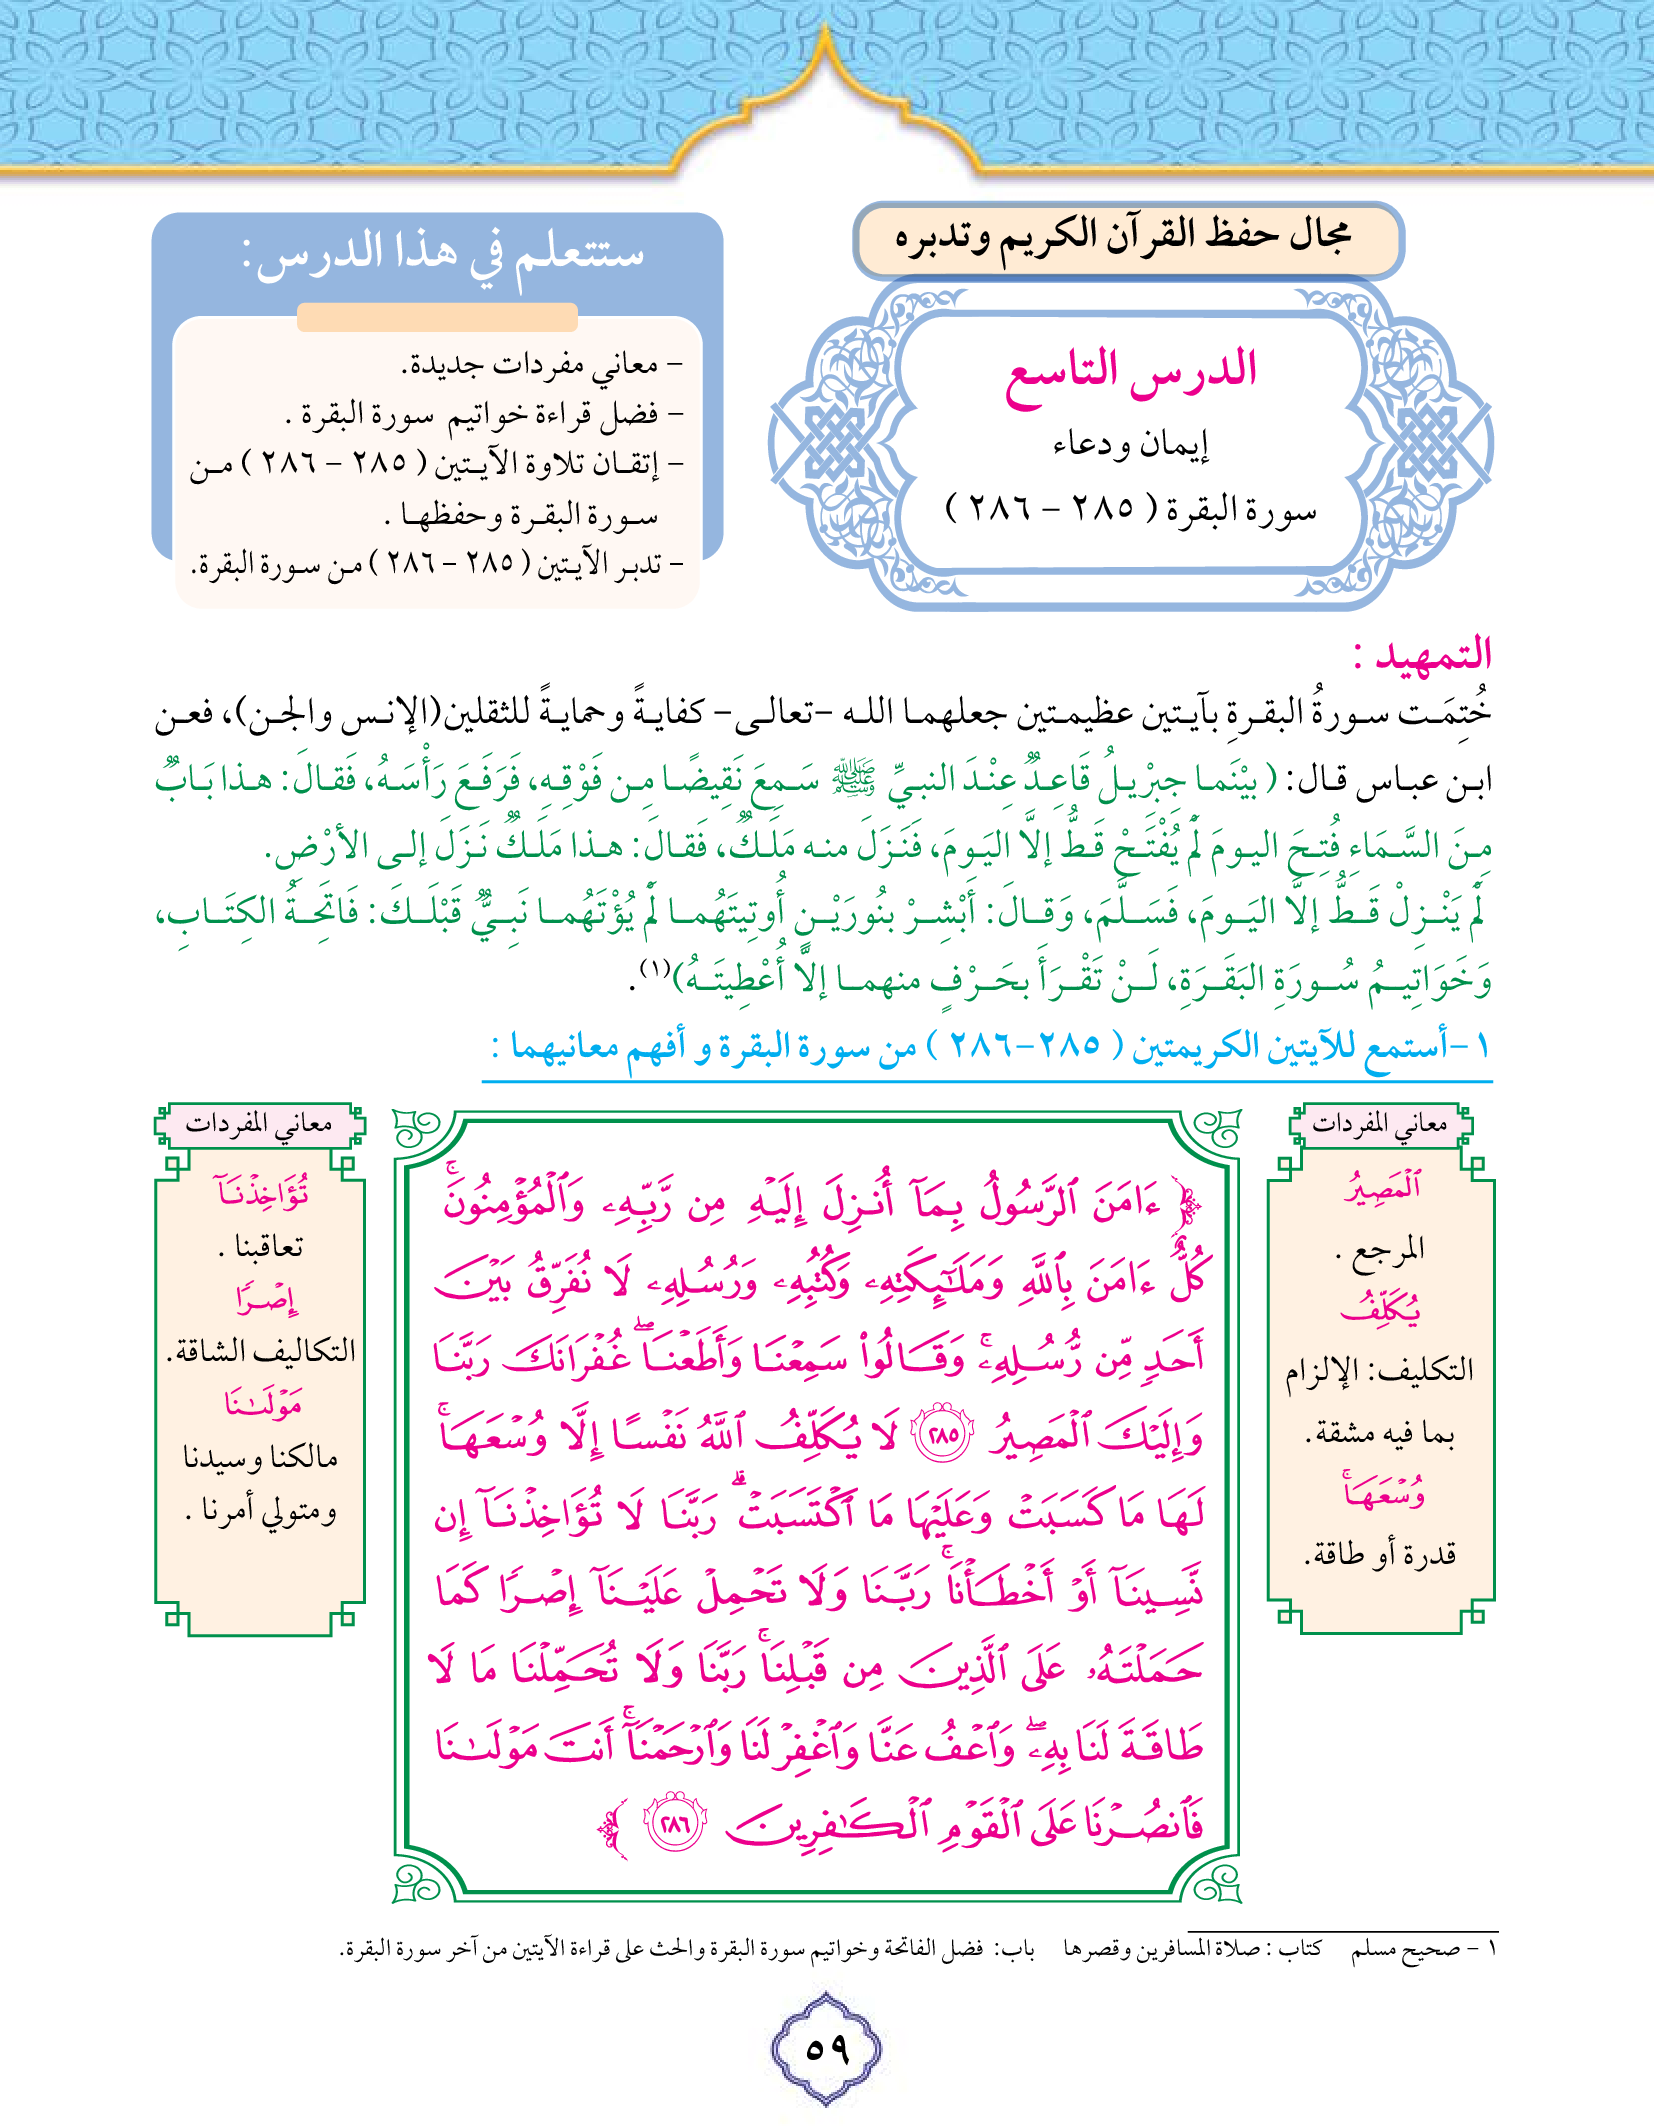 مجال حفظ القرآن الكريم وتدبره
الدرس التاسع
إيمان ودعاء
سورة البقرة ( ٢٨٥ – ٢٨٦ )
ستتعلم في هذا الدرس:
– معاني مفردات جديدة.
– فضل قراءة خواتيم سورة البقرة .
– إتقان تلاوة الآيتين ( ٢٨٥ – ٢٨٦ ) من
سورة البقرة وحفظها .
– تدبر الآيتين ( ٢٨٥ – ٢٨٦ ) من سورة البقرة.
التمهيد :
خُتِمَت سورةُ البقرةِ بآيتين عظيمتين جعلهما الله –تعالى– كفايةً وحمايةً للثقلين(الإنس والجن)، فعن
ابن عباس قال: ( بيْنَما جِبْرِيلُ قَاعِدٌ عِنْدَ النبيِّ ﷺ سَمِعَ نَقِيضًا مِن فَوْقِهِ، فَرَفَعَ رَأْسَهُ، فَقالَ: هذا بَابٌ
مِنَ السَّمَاءِ فُتِحَ اليومَ لَمْ يُفْتَحْ قَطُّ إلَّا اليَومَ، فَنَزَلَ منه مَلَكٌ، فَقالَ: هذا مَلَكٌ نَزَلَ إلى الأرْضِ.
لَمْ يَنْزِلْ قَطُّ إلَّا اليَومَ، فَسَلَّمَ، وَقالَ: أَبْشِرْ بنُورَيْنِ أُوتِيتَهُما لَمْ يُؤْتَهُما نَبِيٌّ قَبْلَكَ: فَاتِحَةُ الكِتَابِ،
وَخَوَاتِيمُ سُورَةِ البَقَرَةِ، لَنْ تَقْرَأَ بحَرْفٍ منهما إلَّا أُعْطِيتَهُ)(١).
١ –أستمع للآيتين الكريمتين ( ٢٨٥–٢٨٦ ) من سورة البقرة و أفهم معانيهما :
معاني المفردات
ٱلْمَصِيرُ
المرجع .
يُكَلِّفُ
التكليف: الإلزام
بما فيه مشقة.
وُسْعَهَاۚ
قدرة أو طاقة.
﴿ ءَامَنَ ٱلرَّسُولُ بِمَآ أُنزِلَ إِلَيْهِ مِن رَّبِّهِۦ وَٱلْمُؤْمِنُونَۚ
كُلٌّ ءَامَنَ بِٱللَّهِ وَمَلَٰٓئِكَتِهِۦ وَكُتُبِهِۦ وَرُسُلِهِۦ لَا نُفَرِّقُ بَيْنَ
أَحَدٍ مِّن رُّسُلِهِۦۚ وَقَالُوا۟ سَمِعْنَا وَأَطَعْنَاۖ غُفْرَانَكَ رَبَّنَا
وَإِلَيْكَ ٱلْمَصِيرُ ٢٨٥ لَا يُكَلِّفُ ٱللَّهُ نَفْسًا إِلَّا وُسْعَهَاۚ
لَهَا مَا كَسَبَتْ وَعَلَيْهَا مَا ٱكْتَسَبَتْۗ رَبَّنَا لَا تُؤَاخِذْنَآ إِن
نَّسِينَآ أَوْ أَخْطَأْنَاۚ رَبَّنَا وَلَا تَحْمِلْ عَلَيْنَآ إِصْرًا كَمَا
حَمَلْتَهُۥ عَلَى ٱلَّذِينَ مِن قَبْلِنَاۚ رَبَّنَا وَلَا تُحَمِّلْنَا مَا لَا
طَاقَةَ لَنَا بِهِۦۖ وَٱعْفُ عَنَّا وَٱغْفِرْ لَنَا وَٱرْحَمْنَآۚ أَنتَ مَوْلَىٰنَا
فَٱنصُرْنَا عَلَى ٱلْقَوْمِ ٱلْكَٰفِرِينَ ٢٨٦ ﴾
معاني المفردات
تُؤَاخِذْنَآ
تعاقبنا .
إِصْرًا
التكاليف الشاقة.
مَوْلَىٰنَا
مالكنا وسيدنا
ومتولي أمرنا .
١ – صحيح مسلم كتاب : صلاة المسافرين وقصرها باب: فضل الفاتحة وخواتيم سورة البقرة والحث على قراءة الآيتين من آخر سورة البقرة.
٥٩